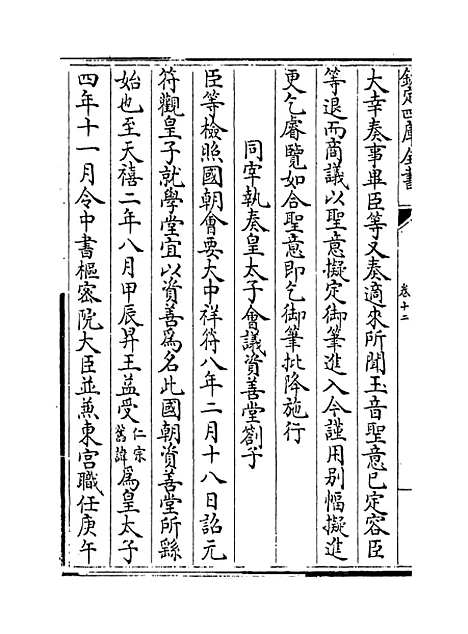 欽定四庫全書
卷十二
大幸奏事畢臣等又奏適來所聞玉音聖意已定容臣
等退而商議以聖意擬定御筆進入今謹用别幅擬進
更乞睿覽如合聖意即乞御筆批降施行
同宰執奏皇太子會議資善堂劄子
臣等檢照國朝會要大中祥符八年二月十八日詔元
符觀皇子就學堂宜以資善爲名此國朝資善堂所繇
始也至天禧二年八月甲辰昇王益受仁宗舊諱爲皇太子
四年十一月令中書樞密院大臣並兼東宮職任庚午